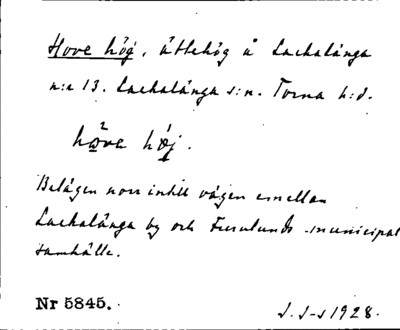 Hove hög, ättehög å Lackalänga
n:r 13. Lackalänga s:n. Torna h:d.
hove høj.
Belägen norr intill vägen emellan
Lackalänga by och Furulunds municipal
samhälle.
Nr 5845.
1928.